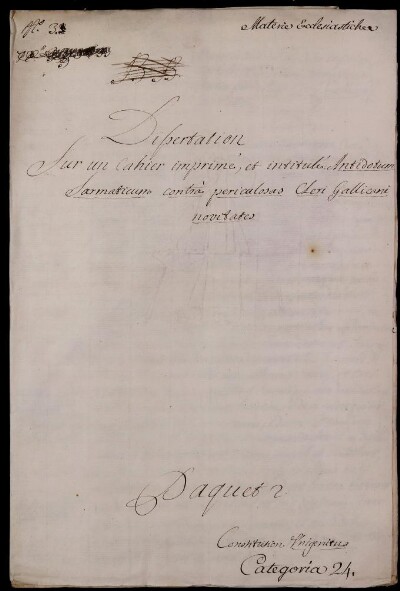 N.° 33
Materie Ecclesiastiche
Dissertation
Sur un Cahier imprimé, et intitulé Antidotum
Sarmaticum contrà periculosas Cleri Gallicani
novitates
Paquet 2
Constitution Unigenitus
Categoria 24.